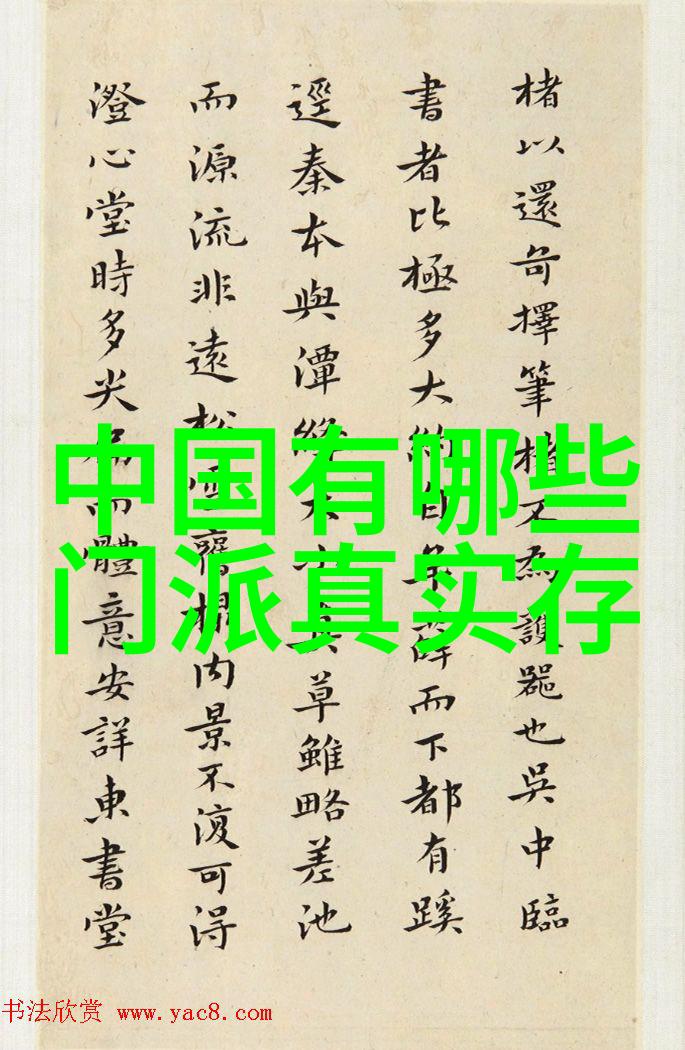 楮以還擇筆楮不為器也吳中臨
書者比極多大約自薛而下都有蹊
逕秦本與潭絳大小真草雖略差池
而源流非遠松内景不復可得
澄心堂時多尖而體意安詳東書堂
中国有哪些
门派真实存
书法欣赏 www.yac8.com